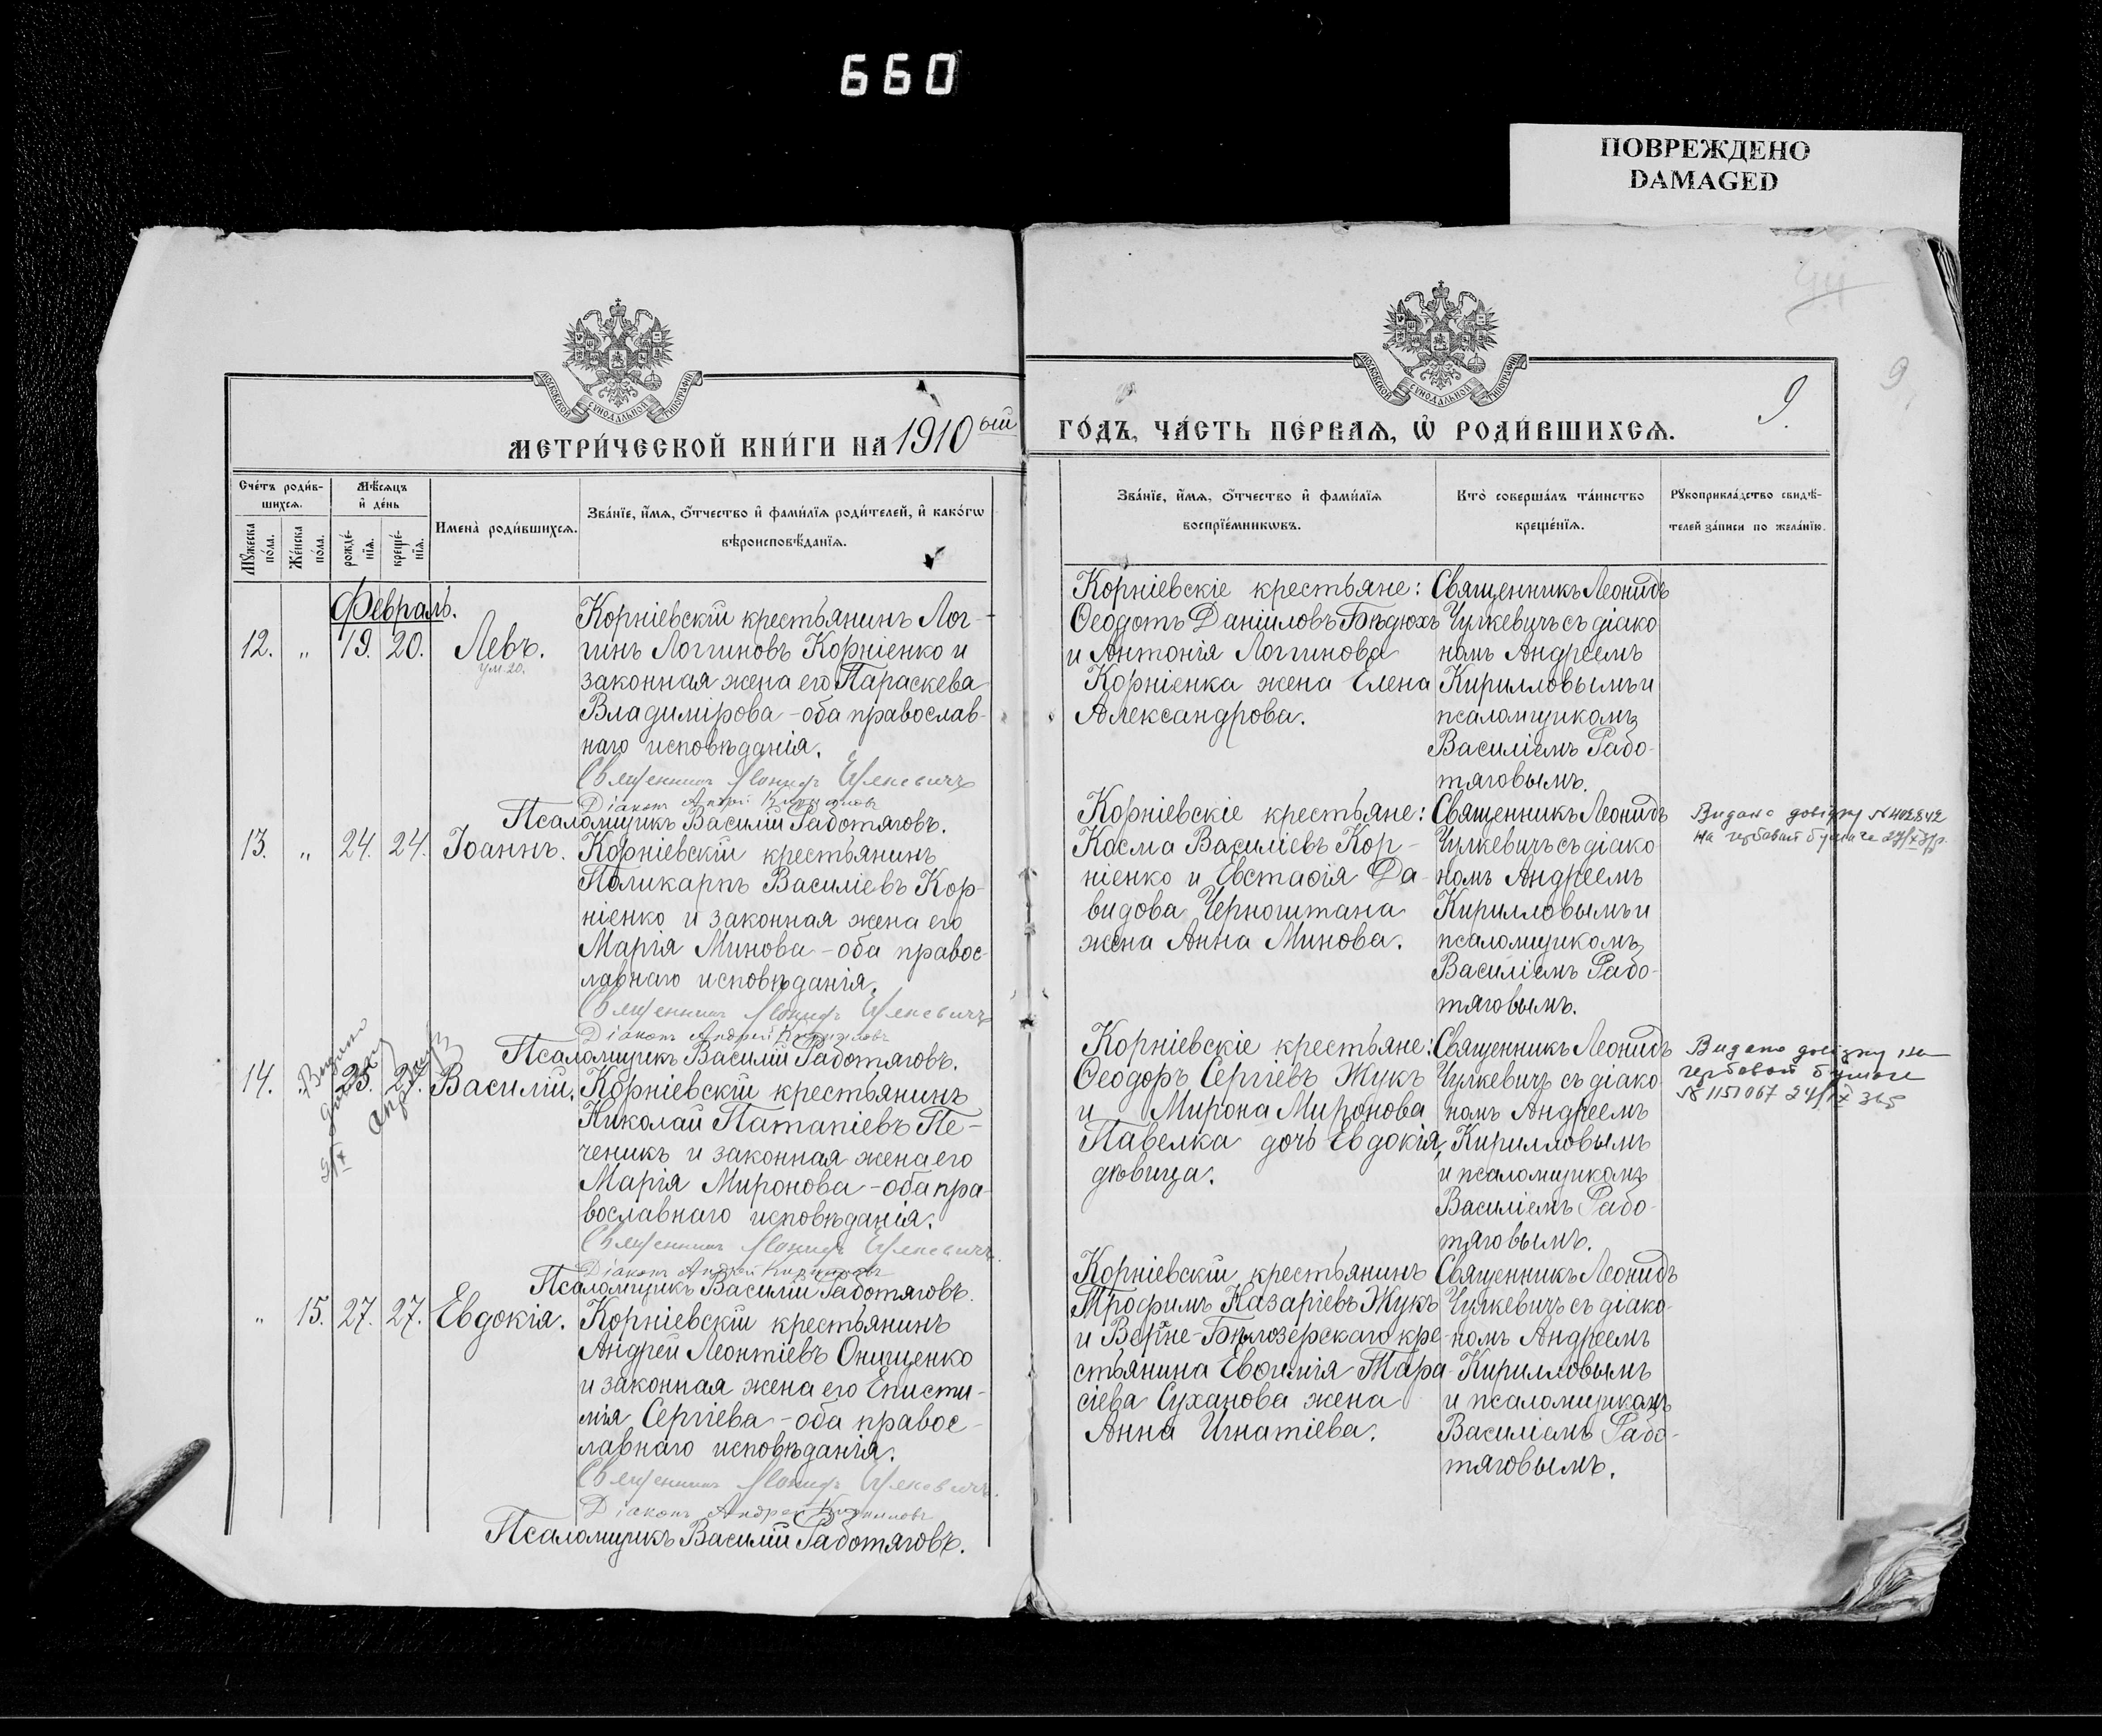 660
ПОВРЕЖДЕНО
DAMAGED
44
9
9.
МОСКОВСКОЙ СУНОДАЛЬНОЙ ТИПОГРАФІИ
МОСКОВСКОЙ СУНОДАЛЬНОЙ ТИПОГРАФІИ
МЕТРИ́ЧЕСКОЙ КНИ́ГИ НА 1910ый
ГО́ДЪ, ЧА́СТЬ ПЕ́РВАѦ, Ѡ҆ РОДИ́ВШИХСѦ.
Сче́тъ роди́в-
шихсѧ.
Мꙋ́жеска по́ла.
Же́нска по́ла.
Мѣ́сѧцъ
и҆ де́нь
рожде́-
нїѧ.
креще́-
нїѧ.
Имена̀ роди́вшихсѧ.
Зва́нїе, и҆́мѧ, ѻ҆́тчество и҆ фами́лїѧ роди́телей, и҆ како́гѡ
вѣроисповѣ́данїѧ.
Зва́нїе, и҆́мѧ, ѻ҆́тчество и҆ фами́лїѧ
воспрїе́мникѡвъ.
Кто̀ соверша́лъ та́инство
креще́нїѧ.
Рꙋкоприкла́дство свидѣ́-
телей за́писи по жела́нїю.
Февраль.
12. „ 19. 20. Левъ.
ум. 20.
Корніевскій крестьянинъ Лог-
гинъ Логгиновъ Корніенко и
законная жена его Параскева
Владимірова - оба православ-
наго исповѣданія.
Священникъ Леонидъ Чулкевичъ
Діаконъ Андрей Кирилловъ
Псаломщикъ Василій Работяговъ.
Корніевскіе крестьяне:
Ѳеодотъ Даніиловъ Бѣдюхъ
и Антонія Логгинова
Корніенка жена Елена
Александрова.
Священникъ Леонидъ
Чулкевичъ съ діако
номъ Андреемъ
Кирилловымъ и
псаломщикомъ
Василіемъ Рабо-
тяговымъ.
13. „ 24. 24. Іоаннъ.
Корніевскій крестьянинъ
Поликарпъ Василіевъ Кор-
ніенко и законная жена его
Марія Минова - оба правос-
лавнаго исповѣданія.
Священникъ Леонидъ Чулкевичъ
Діаконъ Андрей Кирилловъ
Псаломщикъ Василій Работяговъ.
Корніевскіе крестьяне:
Косма Василіевъ Кор-
ніенко и Евстафія Да-
видова Черноштана
жена Анна Минова.
Священникъ Леонидъ
Чулкевичъ съ діако
номъ Андреемъ
Кирилловымъ и
псаломщикомъ
Василіемъ Рабо-
тяговымъ.
Видано довідку № 402842
на гербовай бумаге
14. 23. 27. Василій.
Видано
Корніевскій крестьянинъ
Николай Патапіевъ Пе-
ченикъ и законная жена его
Марія Миронова - оба пра-
вославнаго исповѣданія.
Священникъ Леонидъ Чулкевичъ
Діаконъ Андрей Кирилловъ
Псаломщикъ Василій Работяговъ.
Корніевскіе крестьяне:
Ѳеодоръ Сергіевъ Жукъ
и Мирона Миронова
Павелка дочь Евдокія,
дѣвица.
Священникъ Леонидъ
Чулкевичъ съ діако
номъ Андреемъ
Кирилловымъ
и псаломщикомъ
Василіемъ Рабо-
тяговымъ.
Видано довідку на
гербовой бумаге
№ 1151067
„ 15. 27. 27. Евдокія.
Корніевскій крестьянинъ
Андрей Леонтіевъ Онищенко
и законная жена его Еписти-
мія Сергіева - оба правос-
лавнаго исповѣданія.
Священникъ Леонидъ Чулкевичъ
Діаконъ Андрей Кирилловъ
Псаломщикъ Василій Работяговъ.
Корніевскій крестьянинъ
Трофимъ Назаріевъ Жукъ
и Верпне-Бѣлозерскаго кре-
стьянина Евфимія Тара-
сіева Суханова жена
Анна Игнатіева.
Священникъ Леонидъ
Чулкевичъ съ діако-
номъ Андреемъ
Кирилловымъ
и псаломщикомъ
Василіемъ Рабо-
тяговымъ.